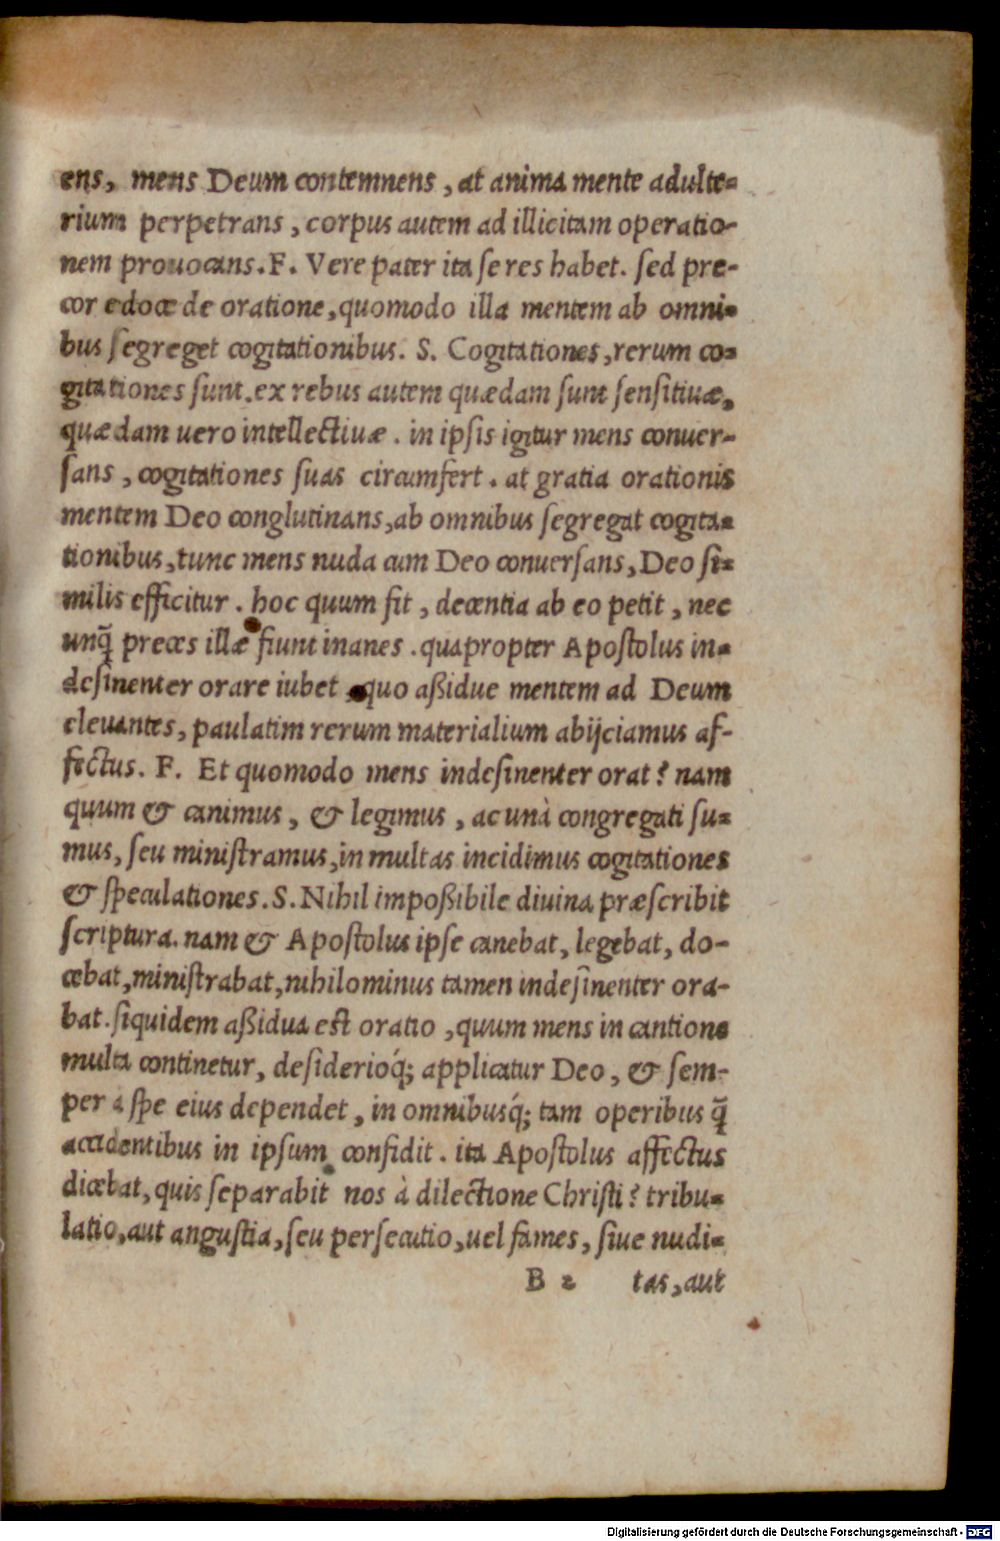 ens, mens Deum contemnens, at anima mente adulte-
rium perpetrans, corpus autem ad illicitam operatio-
nem prouocans. F. Vere pater ita ſe res habet. sed pre-
cor edoce de oratione, quomodo illa mentem ab omni-
bus ſegreget cogitationibus. S. Cogitationes, rerum co-
gitationes ſunt. ex rebus autem quædam ſunt ſenſitiuæ,
quædam uero intellectiuæ. in ipſis igitur mens conuer-
ſans, cogitationes ſuas circumfert. at gratia orationis
mentem Deo conglutinans, ab omnibus ſegregat cogita-
tionibus, tunc mens nuda cum Deo conuerſans, Deo ſi-
milis efficitur. hoc quum fit, decentia ab eo petit, nec
unq̃ preces illæ fiunt inanes. quapropter Apoſtolus in-
deſinenter orare iubet, quo aßidue mentem ad Deum
eleuantes, paulatim rerum materialium abijciamus af-
fectus. F. Et quomodo mens indeſinenter orat? nam
quum & canimus, & legimus, ac unà congregati ſu-
mus, ſeu miniſtramus, in multas incidimus cogitationes
& ſpeculationes. S. Nihil impoßibile diuina præſcribit
ſcriptura. nam & Apoſtolus ipſe canebat, legebat, do-
cebat, miniſtrabat, nihilominus tamen indeſinenter ora-
bat. ſiquidem aßidua eſt oratio, quum mens in cantione
multa continetur, deſiderioq́; applicatur Deo, & ſem-
per à ſpe eius dependet, in omnibusq́; tam operibus q̃
accidentibus in ipſum confidit. ita Apoſtolus affectus
dicebat, quis ſeparabit nos à dilectione Chriſti? tribu-
latio, aut anguſtia, ſeu perſecutio, uel fames, ſiue nudi-
B 2 tas, aut
Digitalisierung gefördert durch die Deutsche Forschungsgemeinschaft - DFG